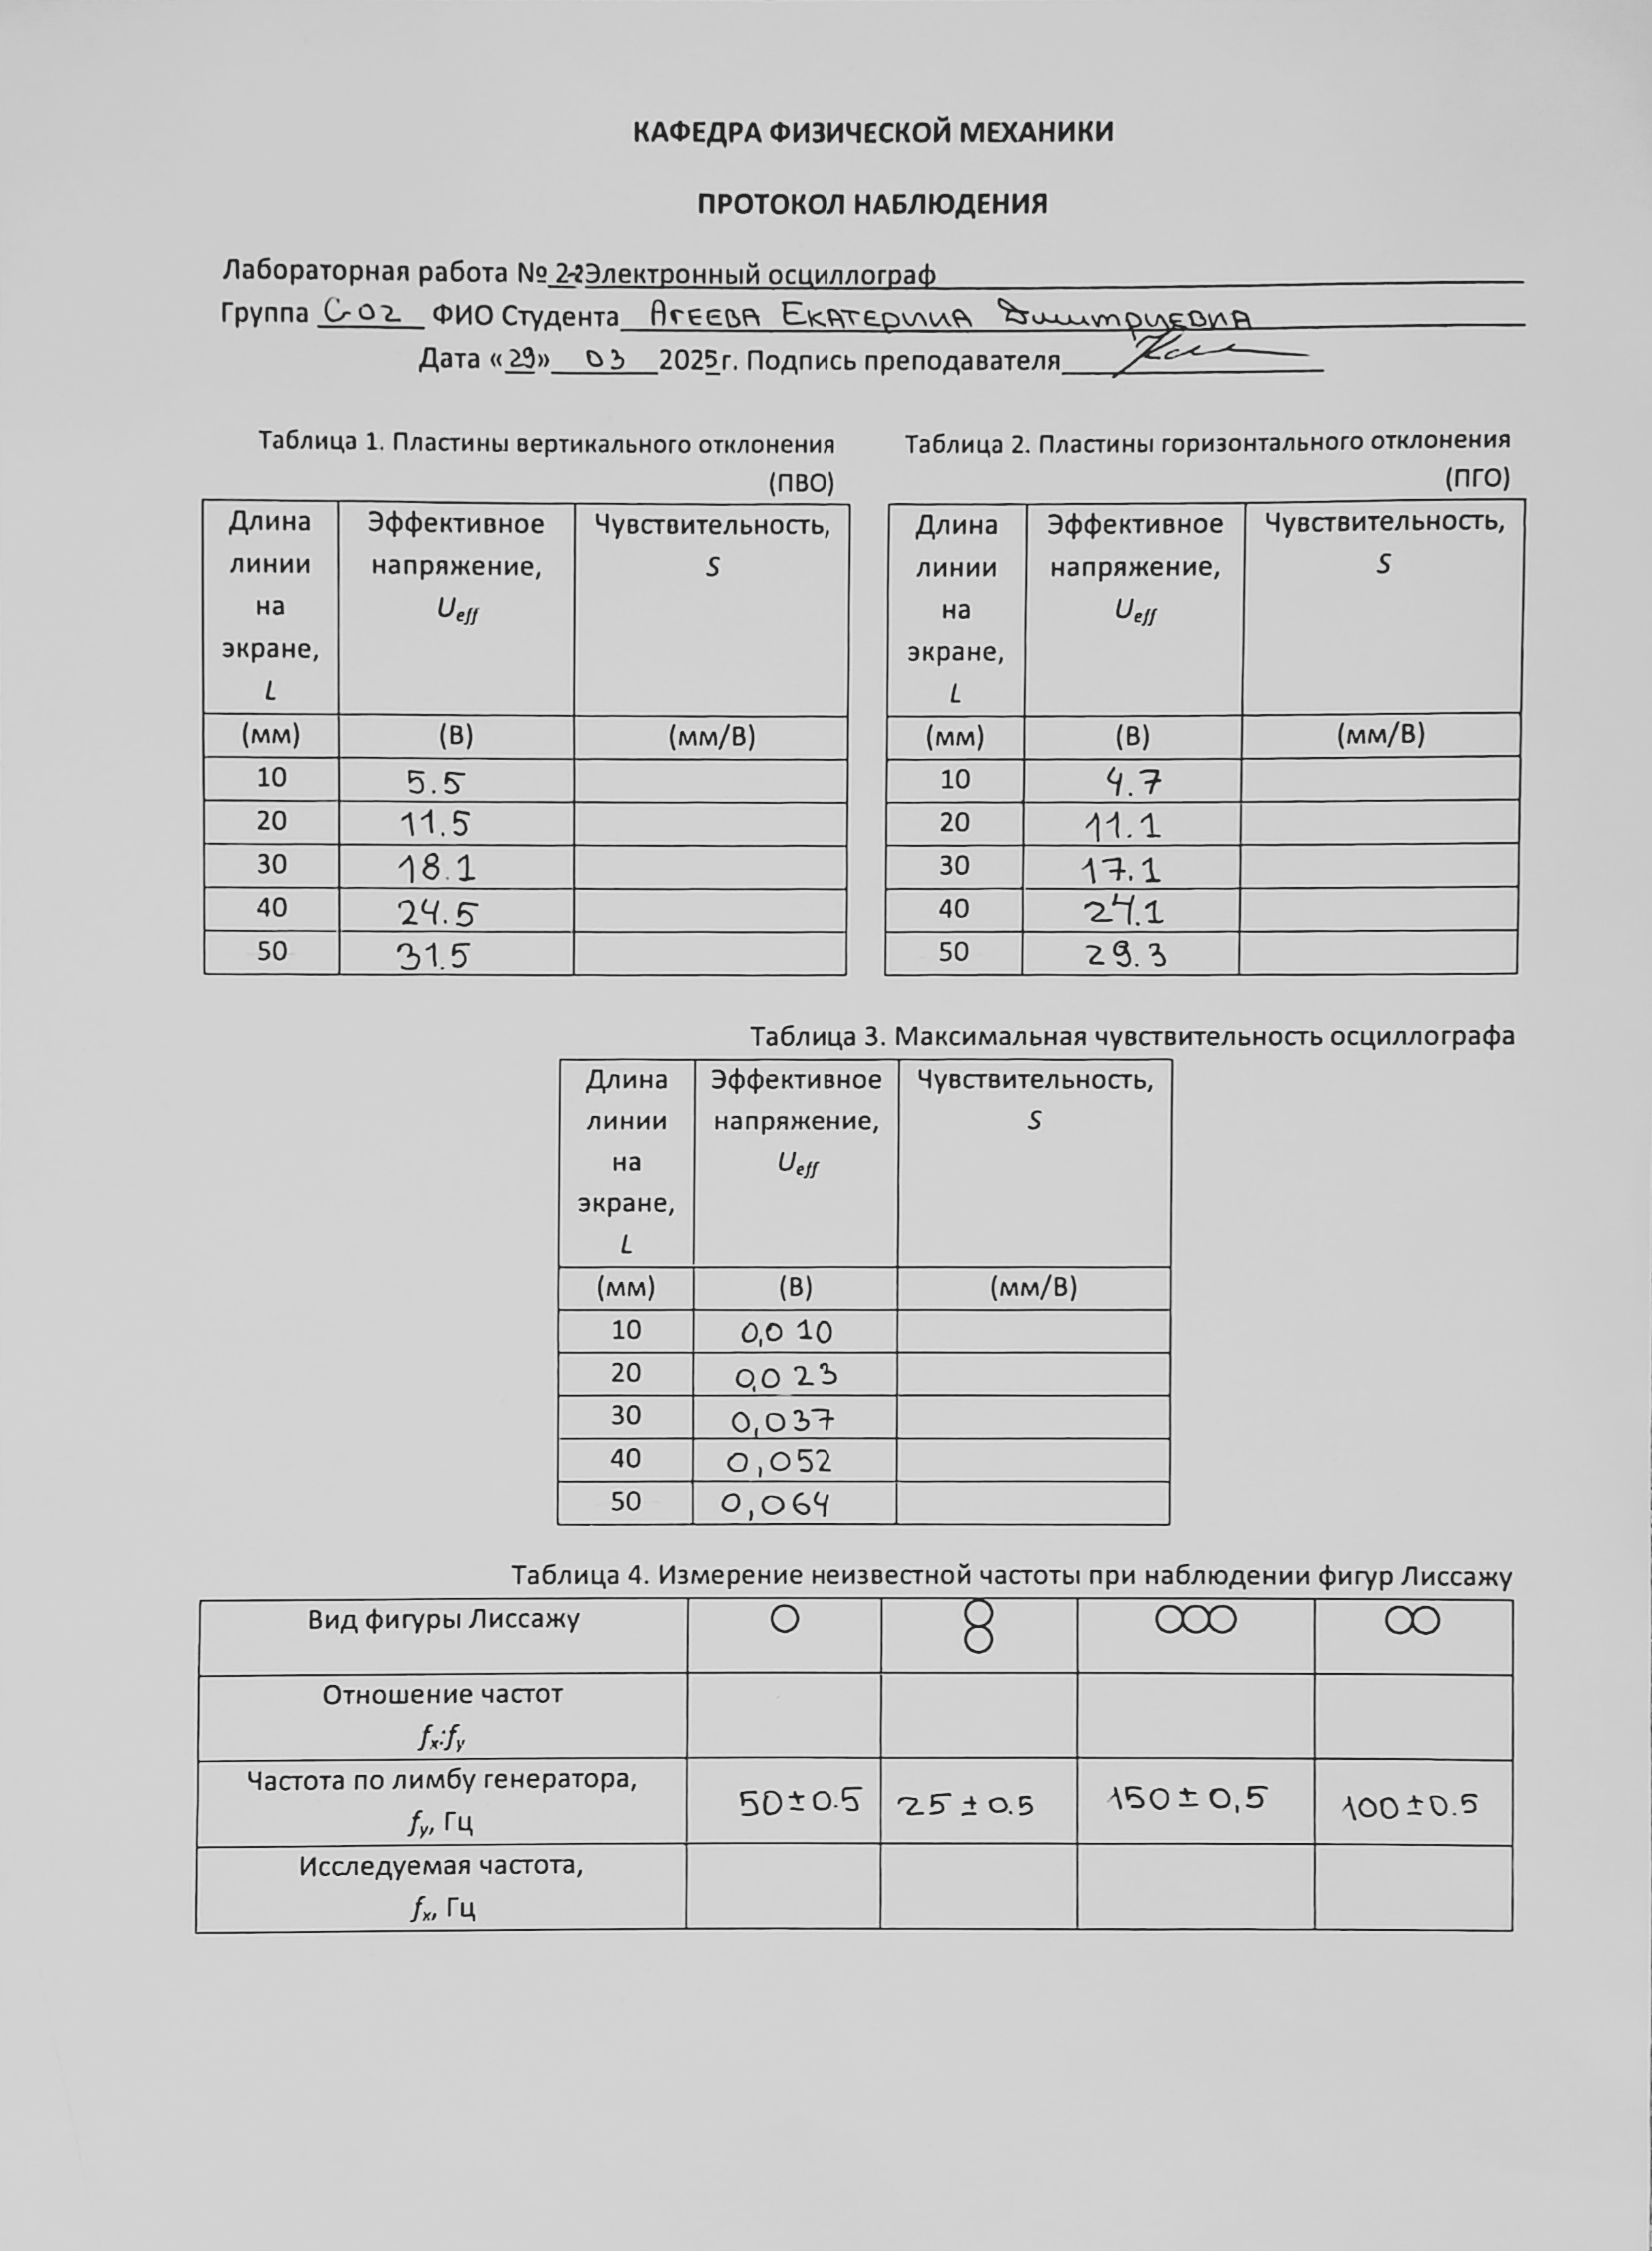 КАФЕДРА ФИЗИЧЕСКОЙ МЕХАНИКИ
ПРОТОКОЛ НАБЛЮДЕНИЯ
Лабораторная работа № 2-2 Электронный осциллограф
Группа С-02 ФИО Студента Агеева Екатерина Дмитриевна
Дата «29» 03 2025г. Подпись преподавателя
Таблица 1. Пластины вертикального отклонения
(ПВО)
Длина линии на экране, L | Эффективное напряжение, Ueff | Чувствительность, S
(мм) | (В) | (мм/В)
10 | 5.5
20 | 11.5
30 | 18.1
40 | 24.5
50 | 31.5
Таблица 2. Пластины горизонтального отклонения
(ПГО)
Длина линии на экране, L | Эффективное напряжение, Ueff | Чувствительность, S
(мм) | (В) | (мм/В)
10 | 4.7
20 | 11.1
30 | 17.1
40 | 24.1
50 | 29.3
Таблица 3. Максимальная чувствительность осциллографа
Длина линии на экране, L | Эффективное напряжение, Ueff | Чувствительность, S
(мм) | (В) | (мм/В)
10 | 0,010
20 | 0,023
30 | 0,037
40 | 0,052
50 | 0,064
Таблица 4. Измерение неизвестной частоты при наблюдении фигур Лиссажу
Вид фигуры Лиссажу
Отношение частот
fx:fy
Частота по лимбу генератора, fy, Гц | 50±0.5 | 25±0.5 | 150±0,5 | 100±0.5
Исследуемая частота,
fx, Гц